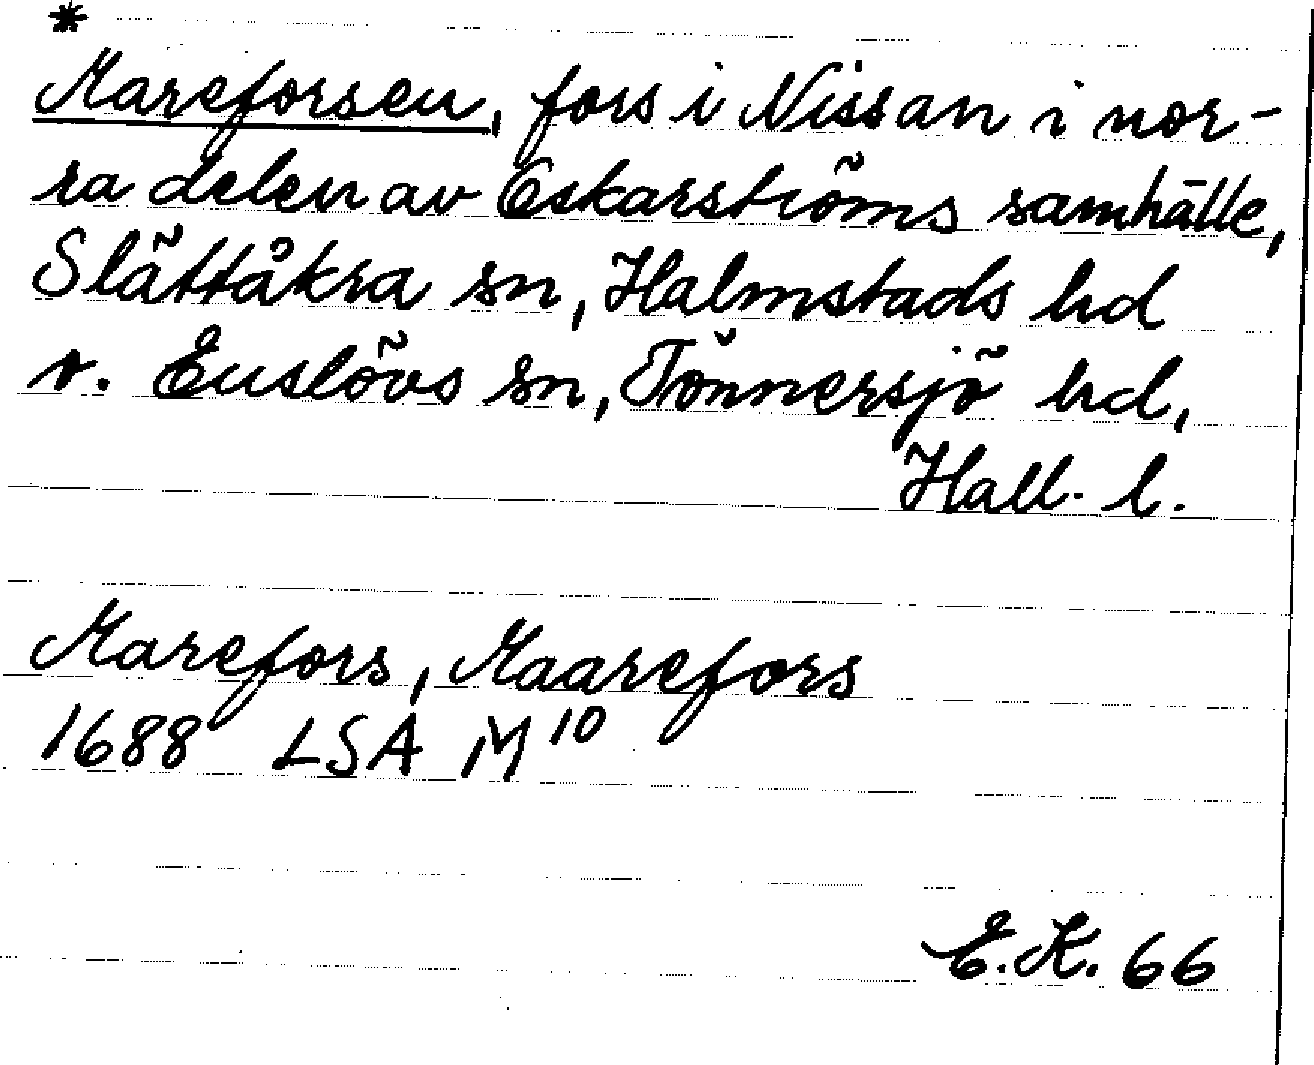 *
Mareforsen, fors i Nissan i nor-
ra delen av Oskarströms samhälle,
Slättåkra sn, Halmstads hd
o. Enslövs sn, Tönnersjö hd,
Hall. l.
Marefors, Maarefors
1688 LSA M 10
E.K. 66